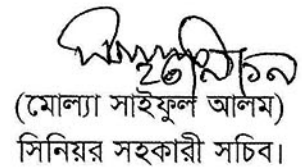 (মোল্যা সাইফুল আলম)
সিনিয়র সহকারী সচিব।